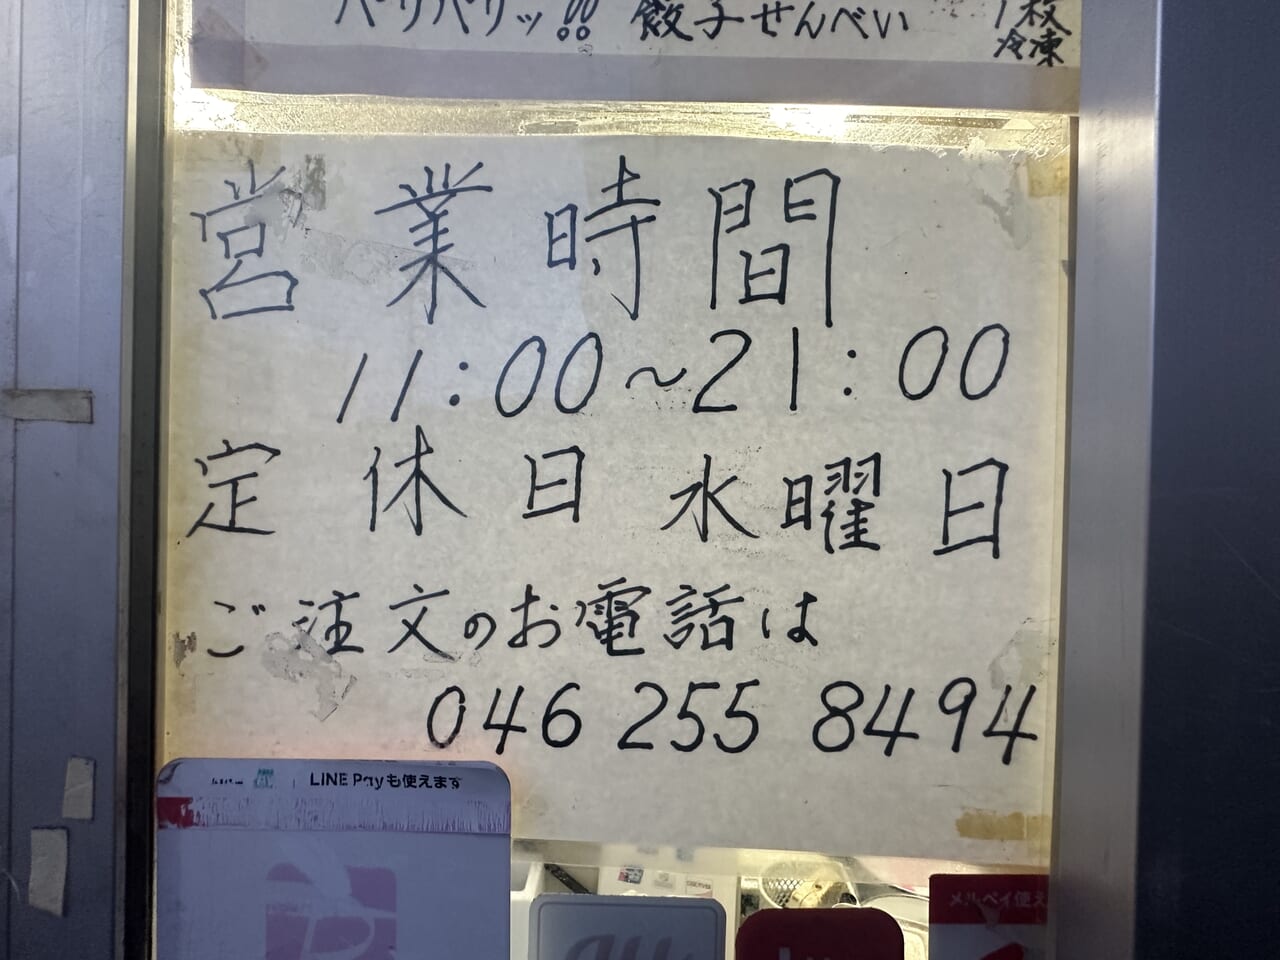 パリパリッ!! 餃子せんべい 1枚
冷凍
営業時間
11:00～21:00
定休日 水曜日
ご注文のお電話は
046 255 8494
LINE Payも使えます
メルペイ使え